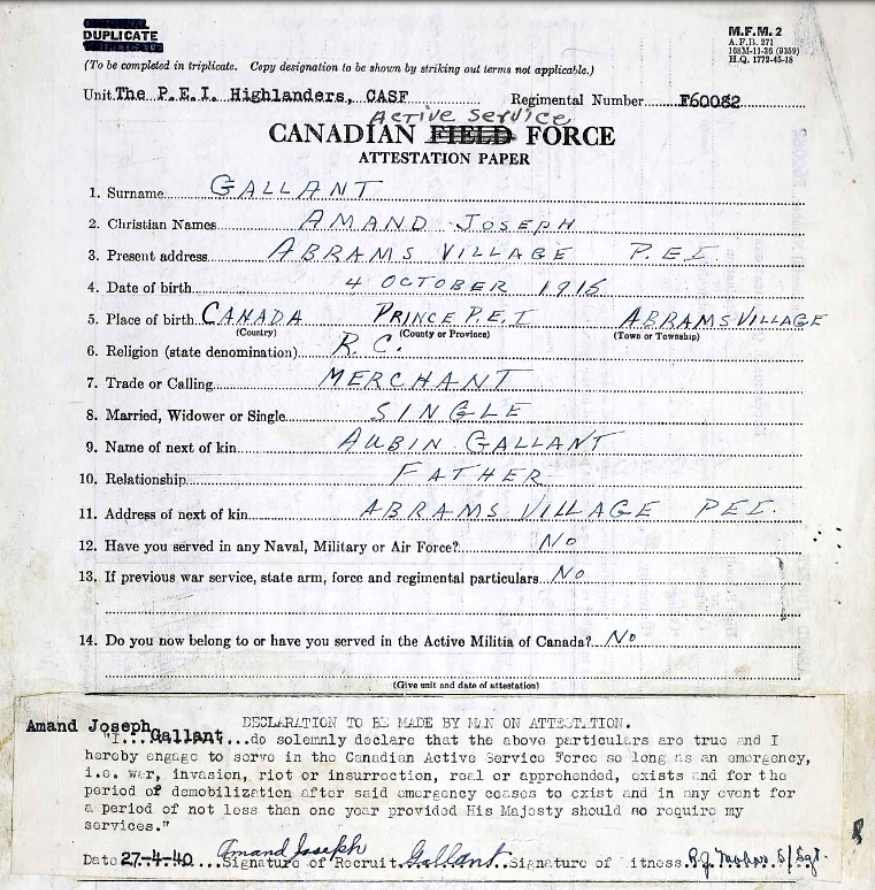 DUPLICATE
M.F.M. 2
A.F.B. 271
H.Q. 1772-45-18
(To be completed in triplicate. Copy designation to be shown by striking out terms not applicable.)
Unit The P.E.I. Highlanders, CASF Regimental Number F60082
Active Service
CANADIAN FIELD FORCE
ATTESTATION PAPER
1. Surname GALLANT
2. Christian Names AMAND JOSEPH
3. Present address ABRAMS VILLAGE P.E.I.
4. Date of birth 4 OCTOBER
5. Place of birth CANADA PRINCE P.E.I ABRAMS VILLAGE
(Country) (County or Province) (Town or Township)
6. Religion (state denomination) R.C.
7. Trade or Calling MERCHANT
8. Married, Widower or Single SINGLE
9. Name of next of kin AUBIN GALLANT
10. Relationship FATHER
11. Address of next of kin ABRAMS VILLAGE PEI.
12. Have you served in any Naval, Military or Air Force? No
13. If previous war service, state arm, force and regimental particulars No
14. Do you now belong to or have you served in the Active Militia of Canada? No
(Give unit and date of attestation)
DECLARATION TO BE MADE BY MAN ON ATTESTATION.
Amand Joseph
"I...Gallant...do solemnly declare that the above particulars are true and I
hereby engage to serve in the Canadian Active Service Force so long as an emergency,
i.e. war, invasion, riot or insurrection, real or apprehended, exists and for the
period of demobilization after said emergency ceases to exist and in any event for
a period of not less than one year provided His Majesty should so require my
services."
Date 27-4-40 Signature of Recruit Amand Joseph Gallant Signature of itness S/Sgt.